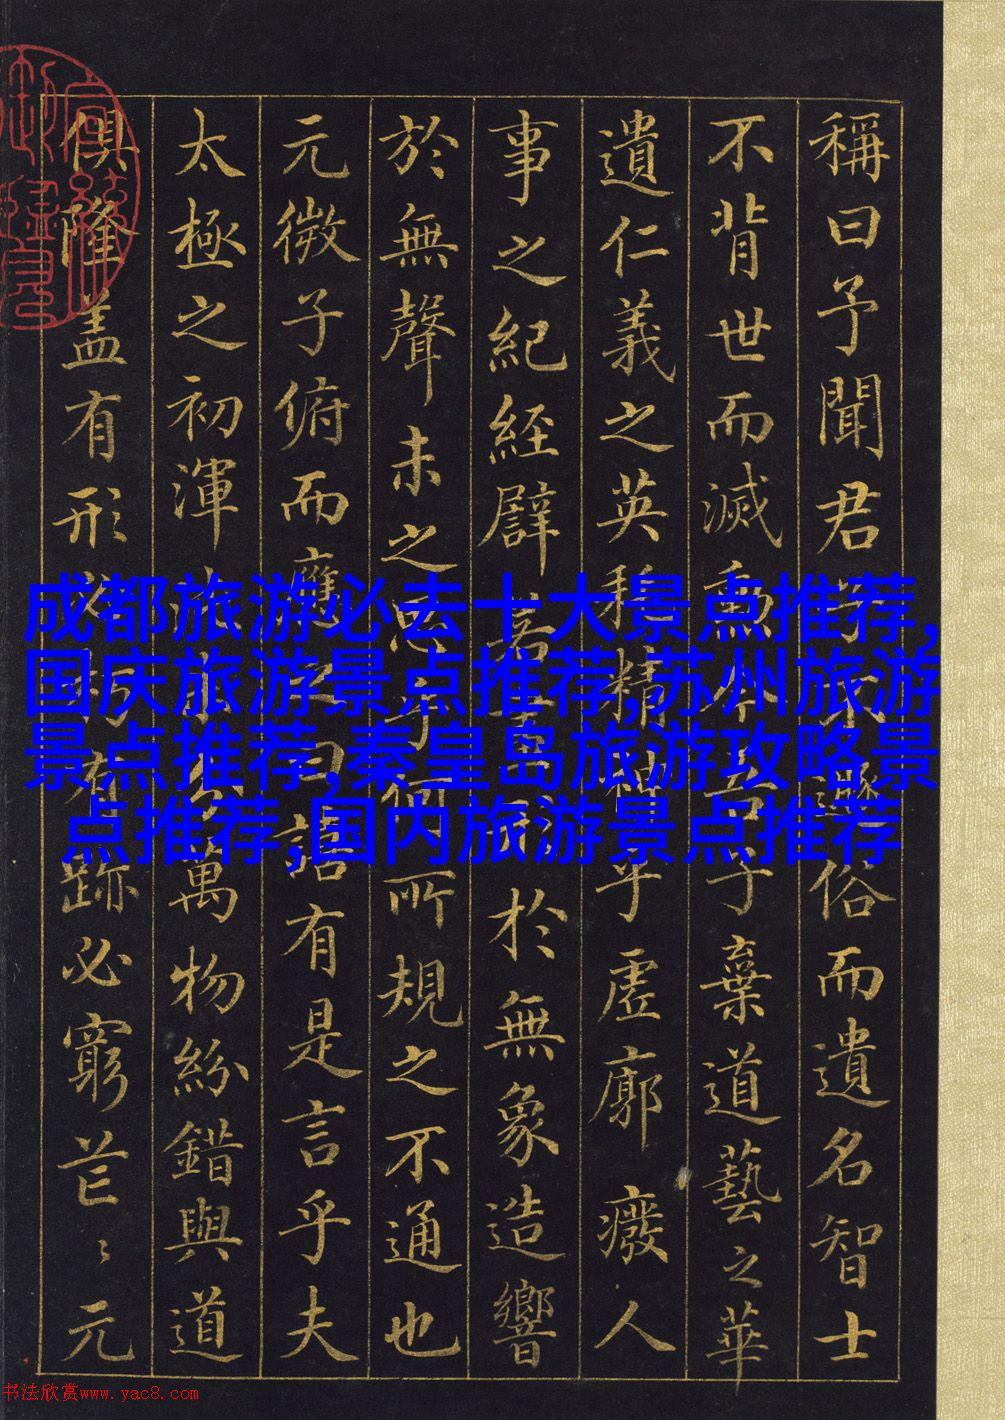 稱曰予聞君子不遯俗而遺名智士
不背世而滅勳今吾子棄道藝之華
遺仁義之英秏精神乎虛廓廢人
事之紀經譬若畫形於無象造響
於無聲未之思乎何所規之不通也
元微子俯而應之曰譆有是言乎夫
太極之初渾沌未分萬物紛錯與道
俱隆盖有形必朽有跡必窮芒〻元
成都旅游必去十大景点推荐,
国庆旅游景点推荐,苏州旅游
景点推荐,秦皇岛旅游攻略景
点推荐,国内旅游景点推荐
书法欣赏www.yac8.com